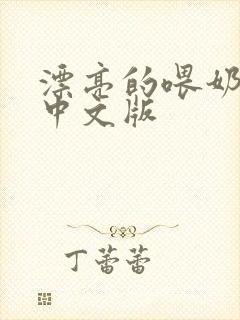 漂亮的喂奶
中文版
丁蕾蕾